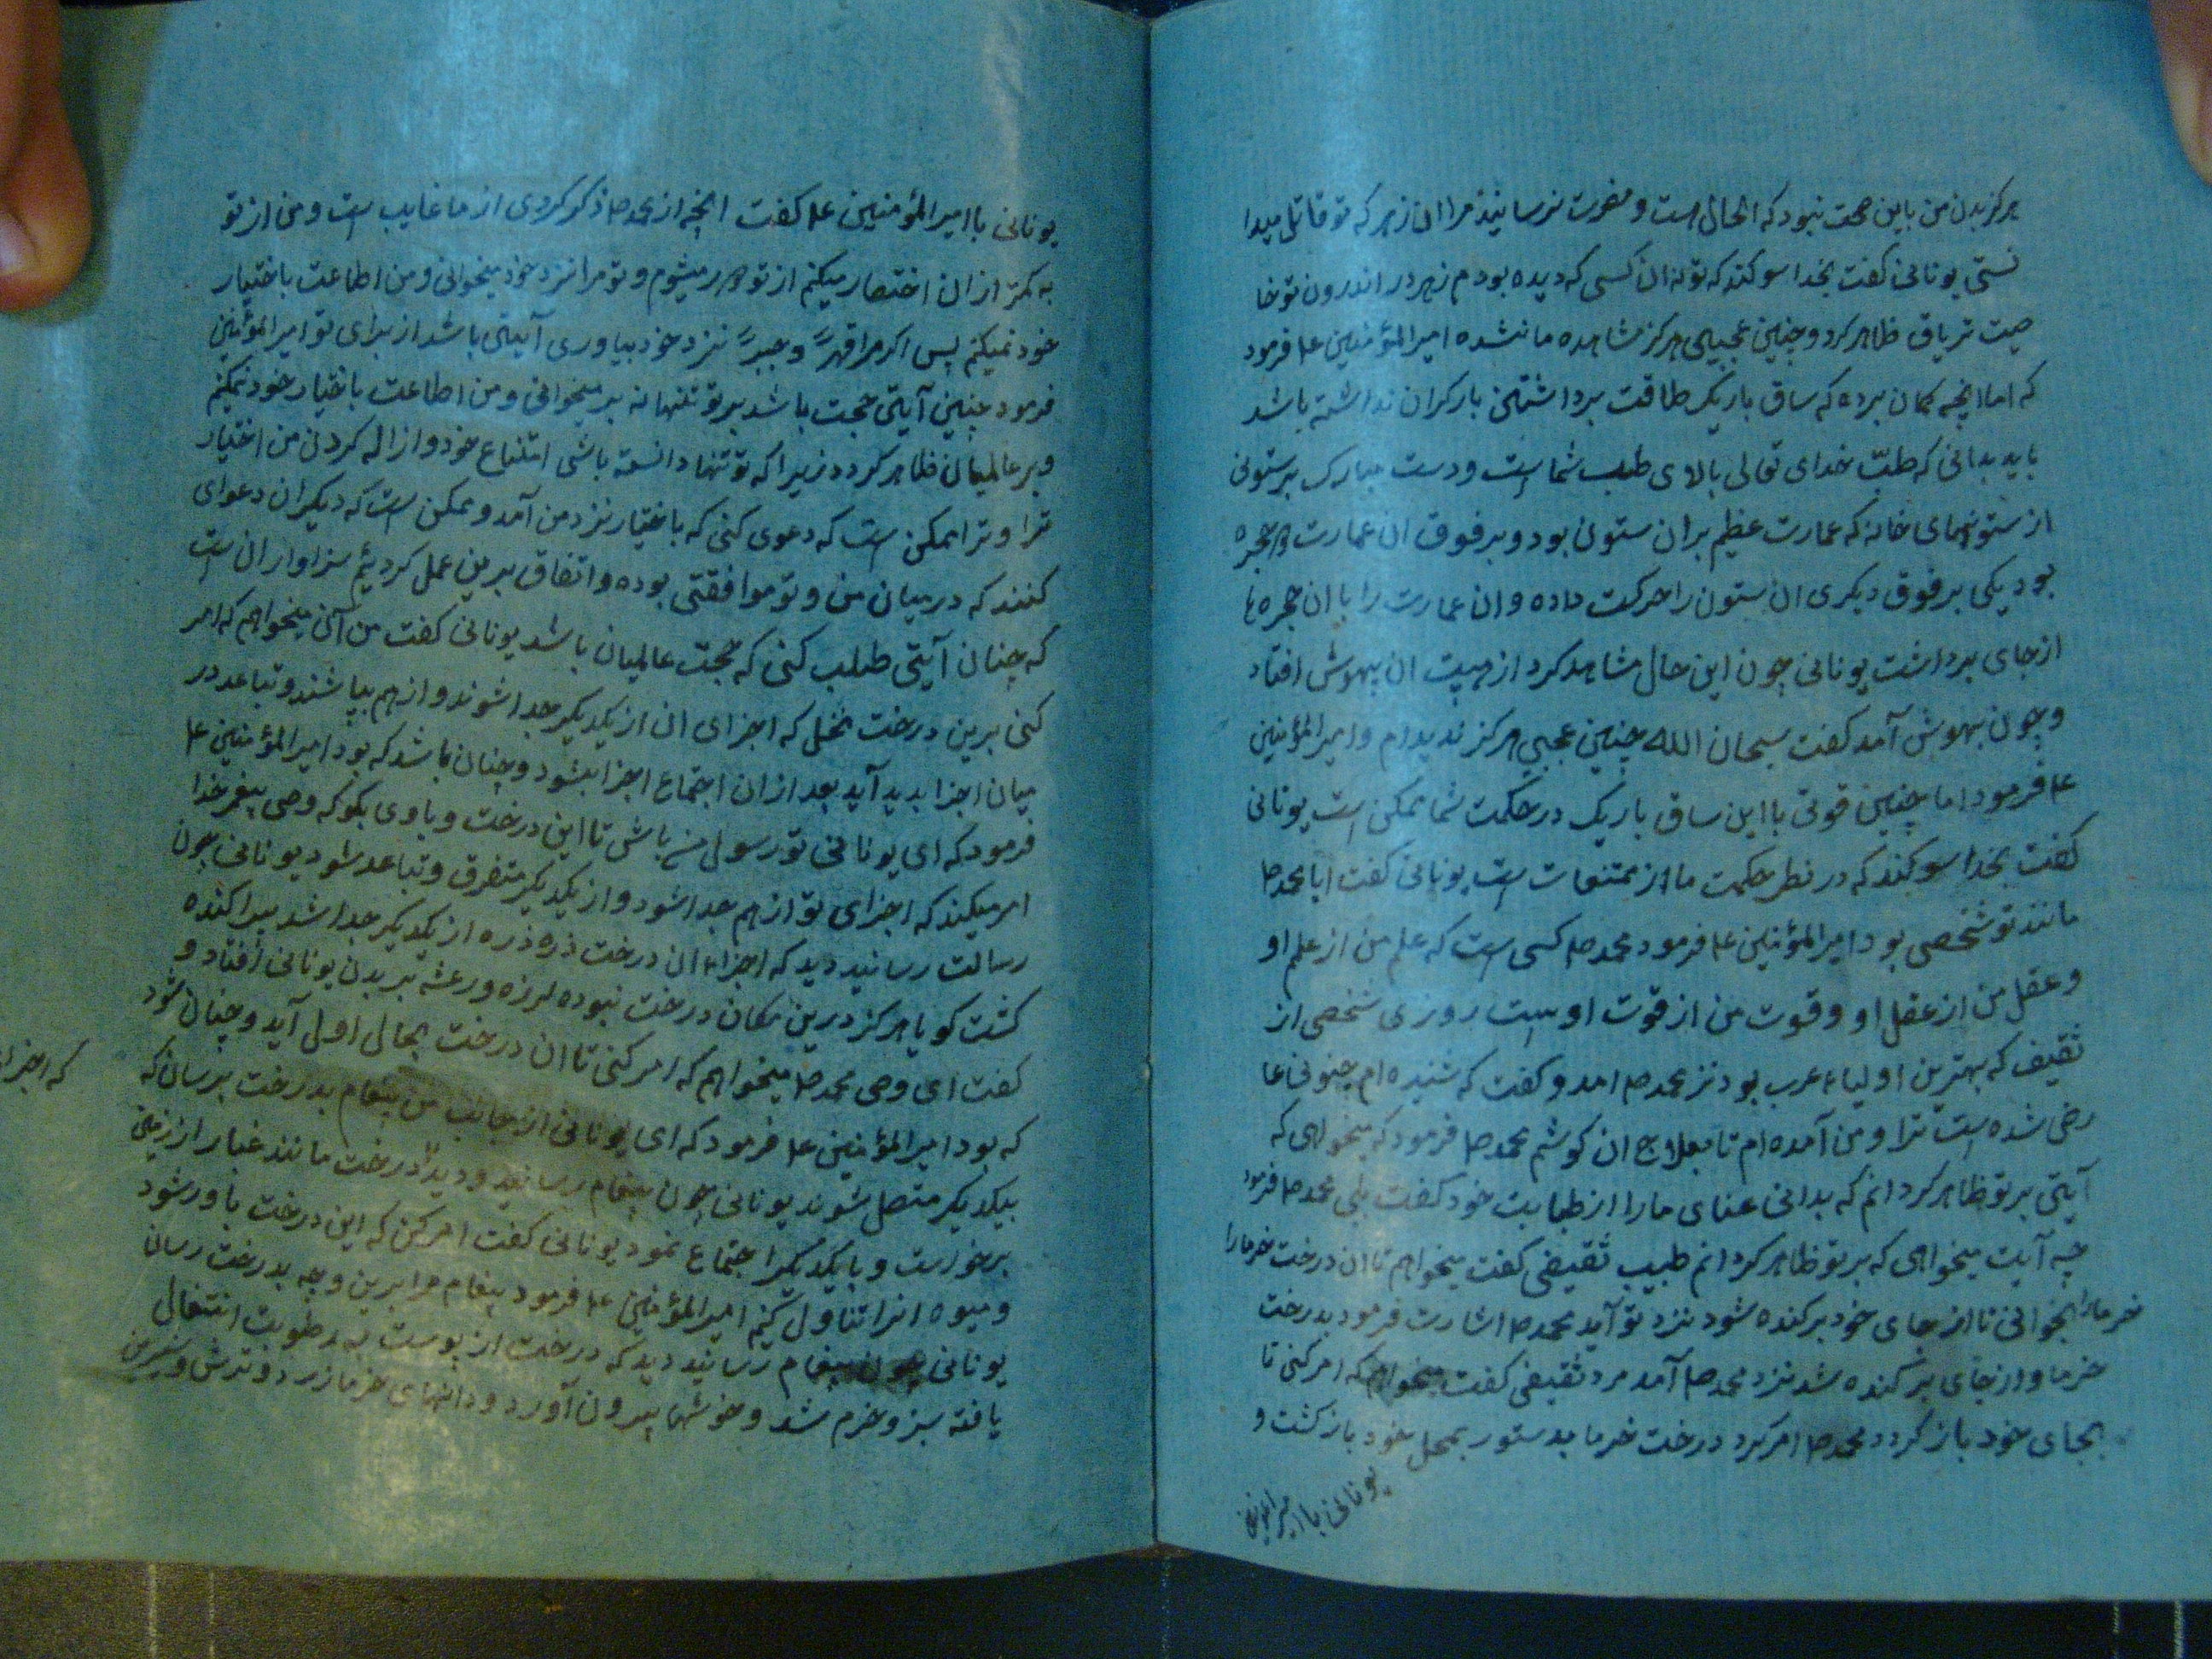 هرکز بدن من باین صحت نبود که الحال هست و مضرت نرسانیذ مرا ان زهر که تو قاتل میدا
نستی یونانی کفت بخدا سوکند که تو نه ان کسی که دیده بودم زهر در اندرون تو خا
صیت تریاق ظاهر کرد و چنین عجیبی هرکز مشاهده ما نشده امیرالمؤمنین ع۴ فرمود
که اما انچه کمان برده که ساق باریک طاقت برداشتن بار کران نداشته باشد
باید بدانی که طبّ خدای تعالی بالای طب شما است و دست مبارک بر ستونی
از ستونهای خانه که عمارت عظیم بران ستون بود و بر فوق ان عمارت دو حجره
بود یکی بر فوق دیکری ان ستون را حرکت داده و ان عمارت را با ان حجره ها
از جای برداشت یونانی چون این حال مشاهد کرد از هیبت ان بیهوش افتاد
و چون بهوش آمد کفت سبحان الله چنین عجبی هرکز ندیدام و امیرالمؤمنین
ع۴ فرمود اما چنین قوتی با این ساق باریک در حکمت شما ممکن است یونانی
کفت بخدا سوکند که در نظر حکمت ما از ممتنعات است یونانی کفت ایا محمد ص
مانند تو شخصی بود امیرالمؤمنین ع۴ فرمود محمد ص کسی است که علم من از علم او
و عقل من از عقل او و قوت من از قوت اوست روزی شخصی از
ثقیف که بهترین اولیاء عرب بود نزد محمد ص امد و کفت که شنیده ام جنونی عا
رض شده است ترا و من آمده ام تا بعلاج ان کوشم محمد ص فرمود که میخواهی که
آیتی بر تو ظاهر کردانم که بدانی غنای ما را از طبابت خود کفت بلی محمد ص فرمود
چه آیت میخواهی که بر تو ظاهر کردانم طبیب ثقیفی کفت میخواهم تا ان درخت خرما را
خرما را بخوانی تا از جای خود برکنده شود نزد تو آید محمد ص اشارت فرمود بدرخت
خرما و از جای برکنده شد نزد محمد ص آمد مرد ثقیفی کفت میخواهم که امر کنی تا
بجای خود باز کردد محمد ص امر کرد درخت خرما بدستور بمحل خود باز کشت و
یونانی با امیرالمؤمنین
یونانی با امیرالمؤمنین ع۴ کفت انچه از محمد ص ذکر کردی از ما غایب است و من از تو
به کمتر از ان اختصار میکنم از تو دور میشوم و تو مرا نزد خود میخوانی و من اطاعت باختیار
خود نمیکنم پس اکر مرا قهراً و جبراً نزد خود بیاوری آیتی باشد از برای تو امیرالمؤمنین
فرمود چنین آیتی حجت باشد بر تو تنها نه بر میخوانی و من اطاعت باختیار خود نمیکنم
و بر عالمیان ظاهر کردد زیرا که تو تنها دانسته باشی امتناع خود و ازاله کردن من اختیار
ترا و ترا ممکن است که دعوی کنی که باختیار نزد من آمد و ممکن است که دیکران دعوای
کنند که در میان من و تو موافقتی بوده و اتفاق برین عمل کردیم سزاوار ان است
که چنان آیتی طلب کنی که حجت عالمیان باشد یونانی کفت من آن میخواهم که امر
کنی برین درخت نخل که اجزای ان از یکدیکر جدا شوند و از هم بپاشند و تباعد در
میان اجزا بدید آید بعد از ان اجتماع اجزا بشود و چنان باشد که بود امیرالمؤمنین ع۴
فرمود که ای یونانی تو رسول من باش تا این درخت و باوی بکو که وصی پیغمبر خدا
امر میکند که اجزای تو از هم جدا شود و از یکدیکر متفرق و تباعد شود یونانی چون
رسالت رسانید دید که اجزاء ان درخت ذره ذره از یکدیکر جدا شد پراکنده
کشت کویا هرکز درین مکان درخت نبوده لرزه و رعشه بر بدن یونانی افتاد و
کفت ای وصی محمد ص میخواهم که امر کنی تا ان درخت بحال اول آید و چنان شود
که بود امیرالمؤمنین ع۴ فرمود که ای یونانی از جانب من پیغام بدرخت برسان که
که اجزا
بیکدیکر متصل شوند یونانی چون پیغام رسانید و دید درخت مانند غبار از زمین
برخواست و با یکدیکر اجتماع نمود یونانی کفت امر کن که این درخت باور شود
و میوه انرا تناول کنیم امیرالمؤمنین ع۴ فرمود پیغام مرا برین وجه بدرخت رسان
یونانی چون پیغام رسانید دید که درخت از یبوست به رطوبت انتقالی
یافته سبز و خرم شد و خوشها بیرون آورد و دانهای خرما زرد و ترش و شیرین